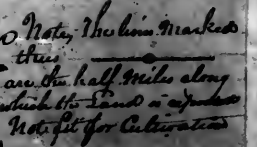 Note, The lines Marked
thus
are the half Miles along
which the Land is
Not fit for Cultivation